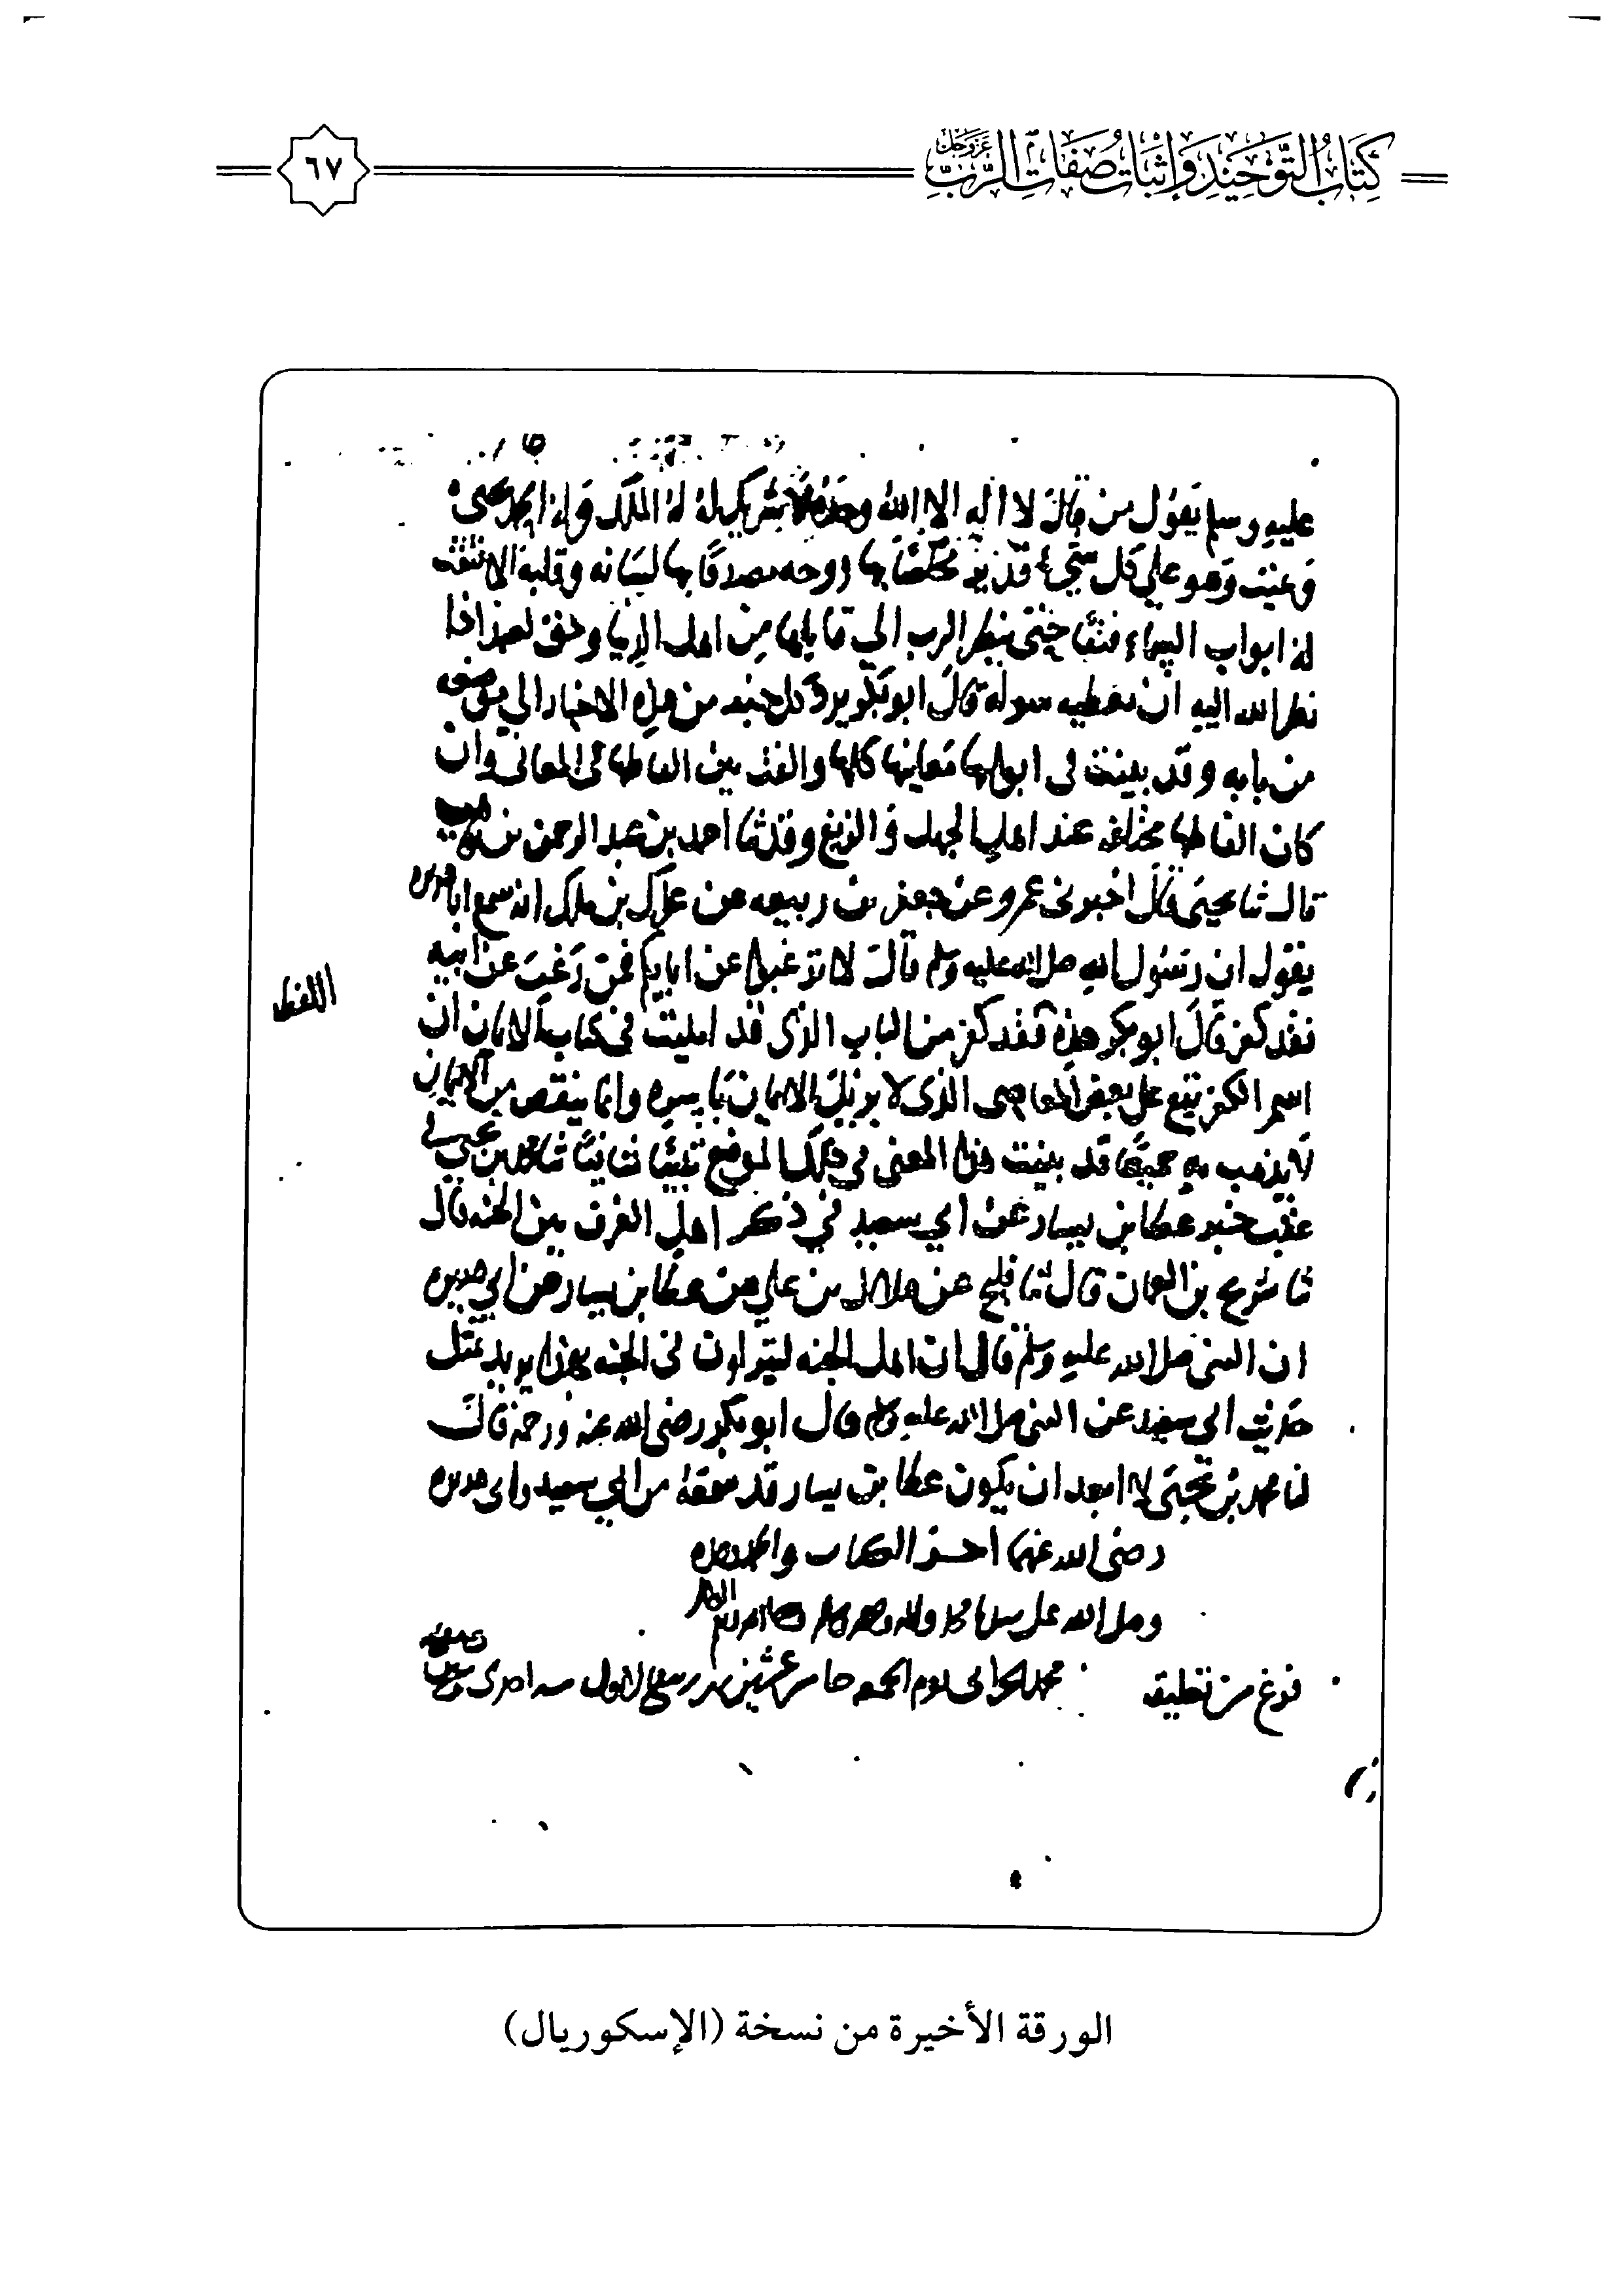 كتاب التوحيد وإثبات صفات الرب عز وجل
٦٧
عليه وسلم يقول من قال لا اله الا الله وحده لا شريك له له الملك وله الحمد يحيى
وعيت وهو على كل شيء قدير مخلصا بها روحه مصدقا بها لسانه وقلبه الا فتقت
له ابواب السماء فتقا حتى ينظر الرب الى قايلها من اهل الدنيا وحق لعبد اذا
نظر الله اليه ان يعطيه سوله قال ابو بكر يرد كل خبر من هذه الاخبار الى موضعه
من بابه وقد بينت فى ابوابها معانيها كلها والفت بين الفاظها فى المعانى وان
كان الفاظها مختلفه عند اهل الجهل والزيغ وقد ثنا احمد بن عبد الرحمن بن وهب
قال ثنا يحيى قال اخبرنى عمرو عن جعفر بن ربيعه عن عراك بن ملك انه سمع ابا هريره
يقول ان رسول الله صلى الله عليه وسلم قال لا ترغبوا عن ابايكم فمن رغب عن ابيه
اللفظ
فقد كفر قال ابو بكر هذه فقد كفر من الباب الذى قد امليت فى كتاب الايمان ان
اسم الكفر يقع على بعض المعاصى الذى لا يزيل الايمان باسره وانما ينقص من الايمان
لا يذهب به جميعا قد بينت هذا المعنى فى ذلك الموضع تبيينا شافيا ثنا محمد بن يحيى فى
عقب خبر عطا بن يسار عن ابي سعيد في ذكر اهل الغرف من الجنه قال
ثنا سريج بن النعمان قال ثنا فليح عن هلال بن على عن عطا بن يسار عن ابي هريره
ان النبى صلى الله عليه وسلم قال ان اهل الجنه ليتراون فى الجنه بهذا يريد بمثل
حديث ابي سعيد عن النبى صلى الله عليه وسلم قال ابو بكر رضى الله عنه ورحمه قال
لنا محمد بن يحيى لا ابعد ان يكون عطا بن يسار قد سمعه من ابي سعيد وابى هريره
رضى الله عنهما اخر الكتاب والحمد لله
وصلى الله على سيدنا محمد واله وصحبه وسلم
فرغ من تعليقه محمد الحرانى يوم الجمعه خامس عشرين شهر ربيع الاول سنه احدى
الورقة الأخيرة من نسخة (الإسكوريال)